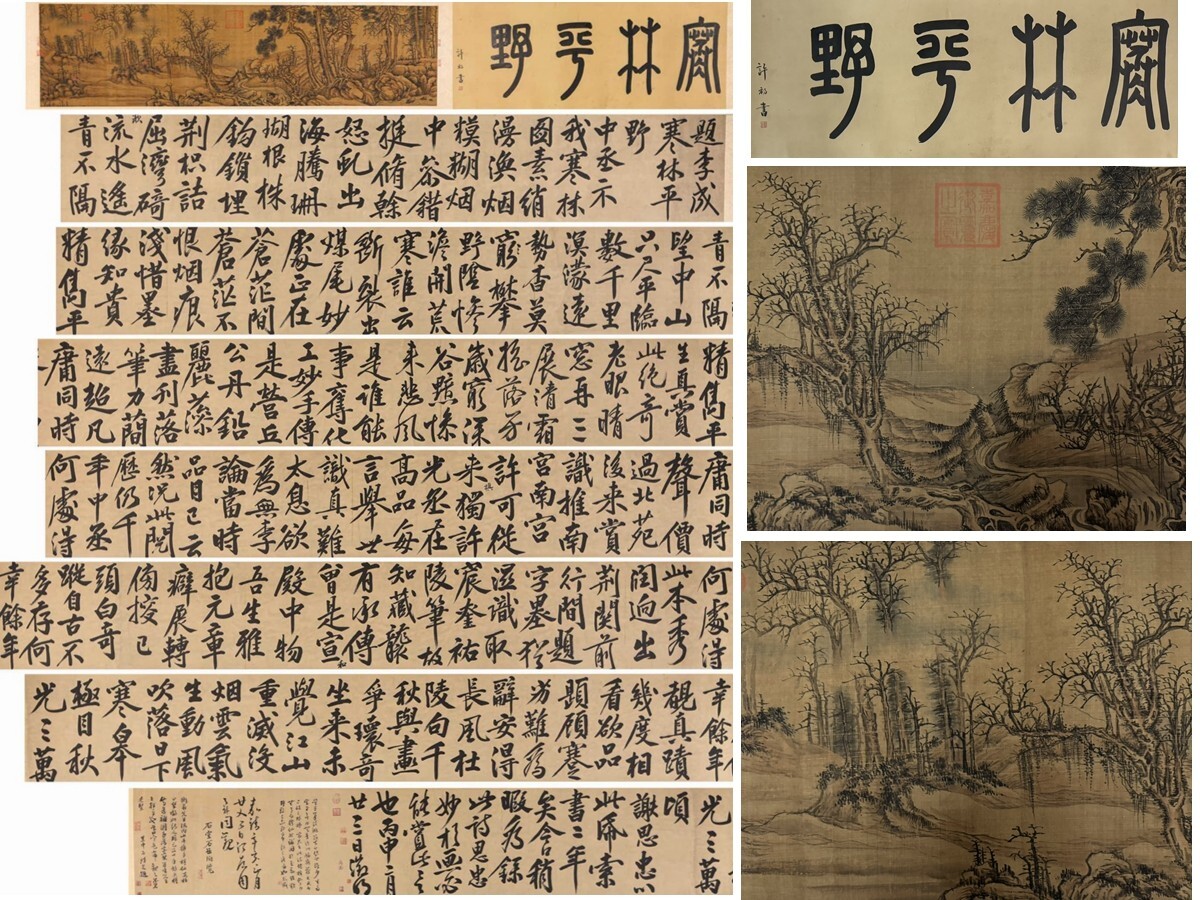 寒林平野
許初書
題李成
寒林平
野
中丞示
我寒林
圖素綃
漫漶烟
糢糊烟
中錯
挺脩榦
怒虬出
海騰珊
瑚根株
鈎鎖埋
荆枳詰
屈灣碕
流水逶
青不隔
青不隔
坐中山
只尺平臨
數千里
溟濛遠
勢杳莫
窮攀
野陰慘
澹開荒
寒誰云
斷裂出
煤尾妙
處正在
蒼茫間
蒼茫不
恨烟痕
淺惜墨
緣知貴
精雋平
精雋平
生真賞
此絕奇
老眼晴
窓再三
展清霜
搖落
歲窮深
谷黯慘
来悲風
是誰能
事奪化
工妙手傳
是營丘
公丹鉛
麗藻
盡刊落
筆力蕳
遠超凡
庸同時
庸同時
聲價
過北苑
後来賞
識推南
宮南宮
許可從
来獨許
光丞在
高品每
言舉世
識真難
太息欲
為無李
論當時
品目已云
然況此閱
歷仍千
年中丞
何處得
何處得
此本秀
闊逈出
荆關前
行間題
字墨猶
濕識取
宸奎祐
陵筆故
知藏襲
有承傳
曾是宣和
殿中物
吾生雅
抱元章
癖展轉
傍搜已
頭白奇
蹤自古不
多存何
幸餘年
幸餘年
覩真蹟
幾度相
看欲品
題顧蹇
劣難為
辭安得
長風杜
陵句千
秋與畫
爭瓌奇
坐来未
覺江山
重滅沒
烟雲氣
生動風
吹落日下
寒皐
極目秋
光三萬
光三萬
頃
謝思忠以
此帋索
書二年
矣今稍
暇為錄
此詩思忠
妙於画必
能賞此言
也丙申二月
廿三日徵明
寒林平野
許初書